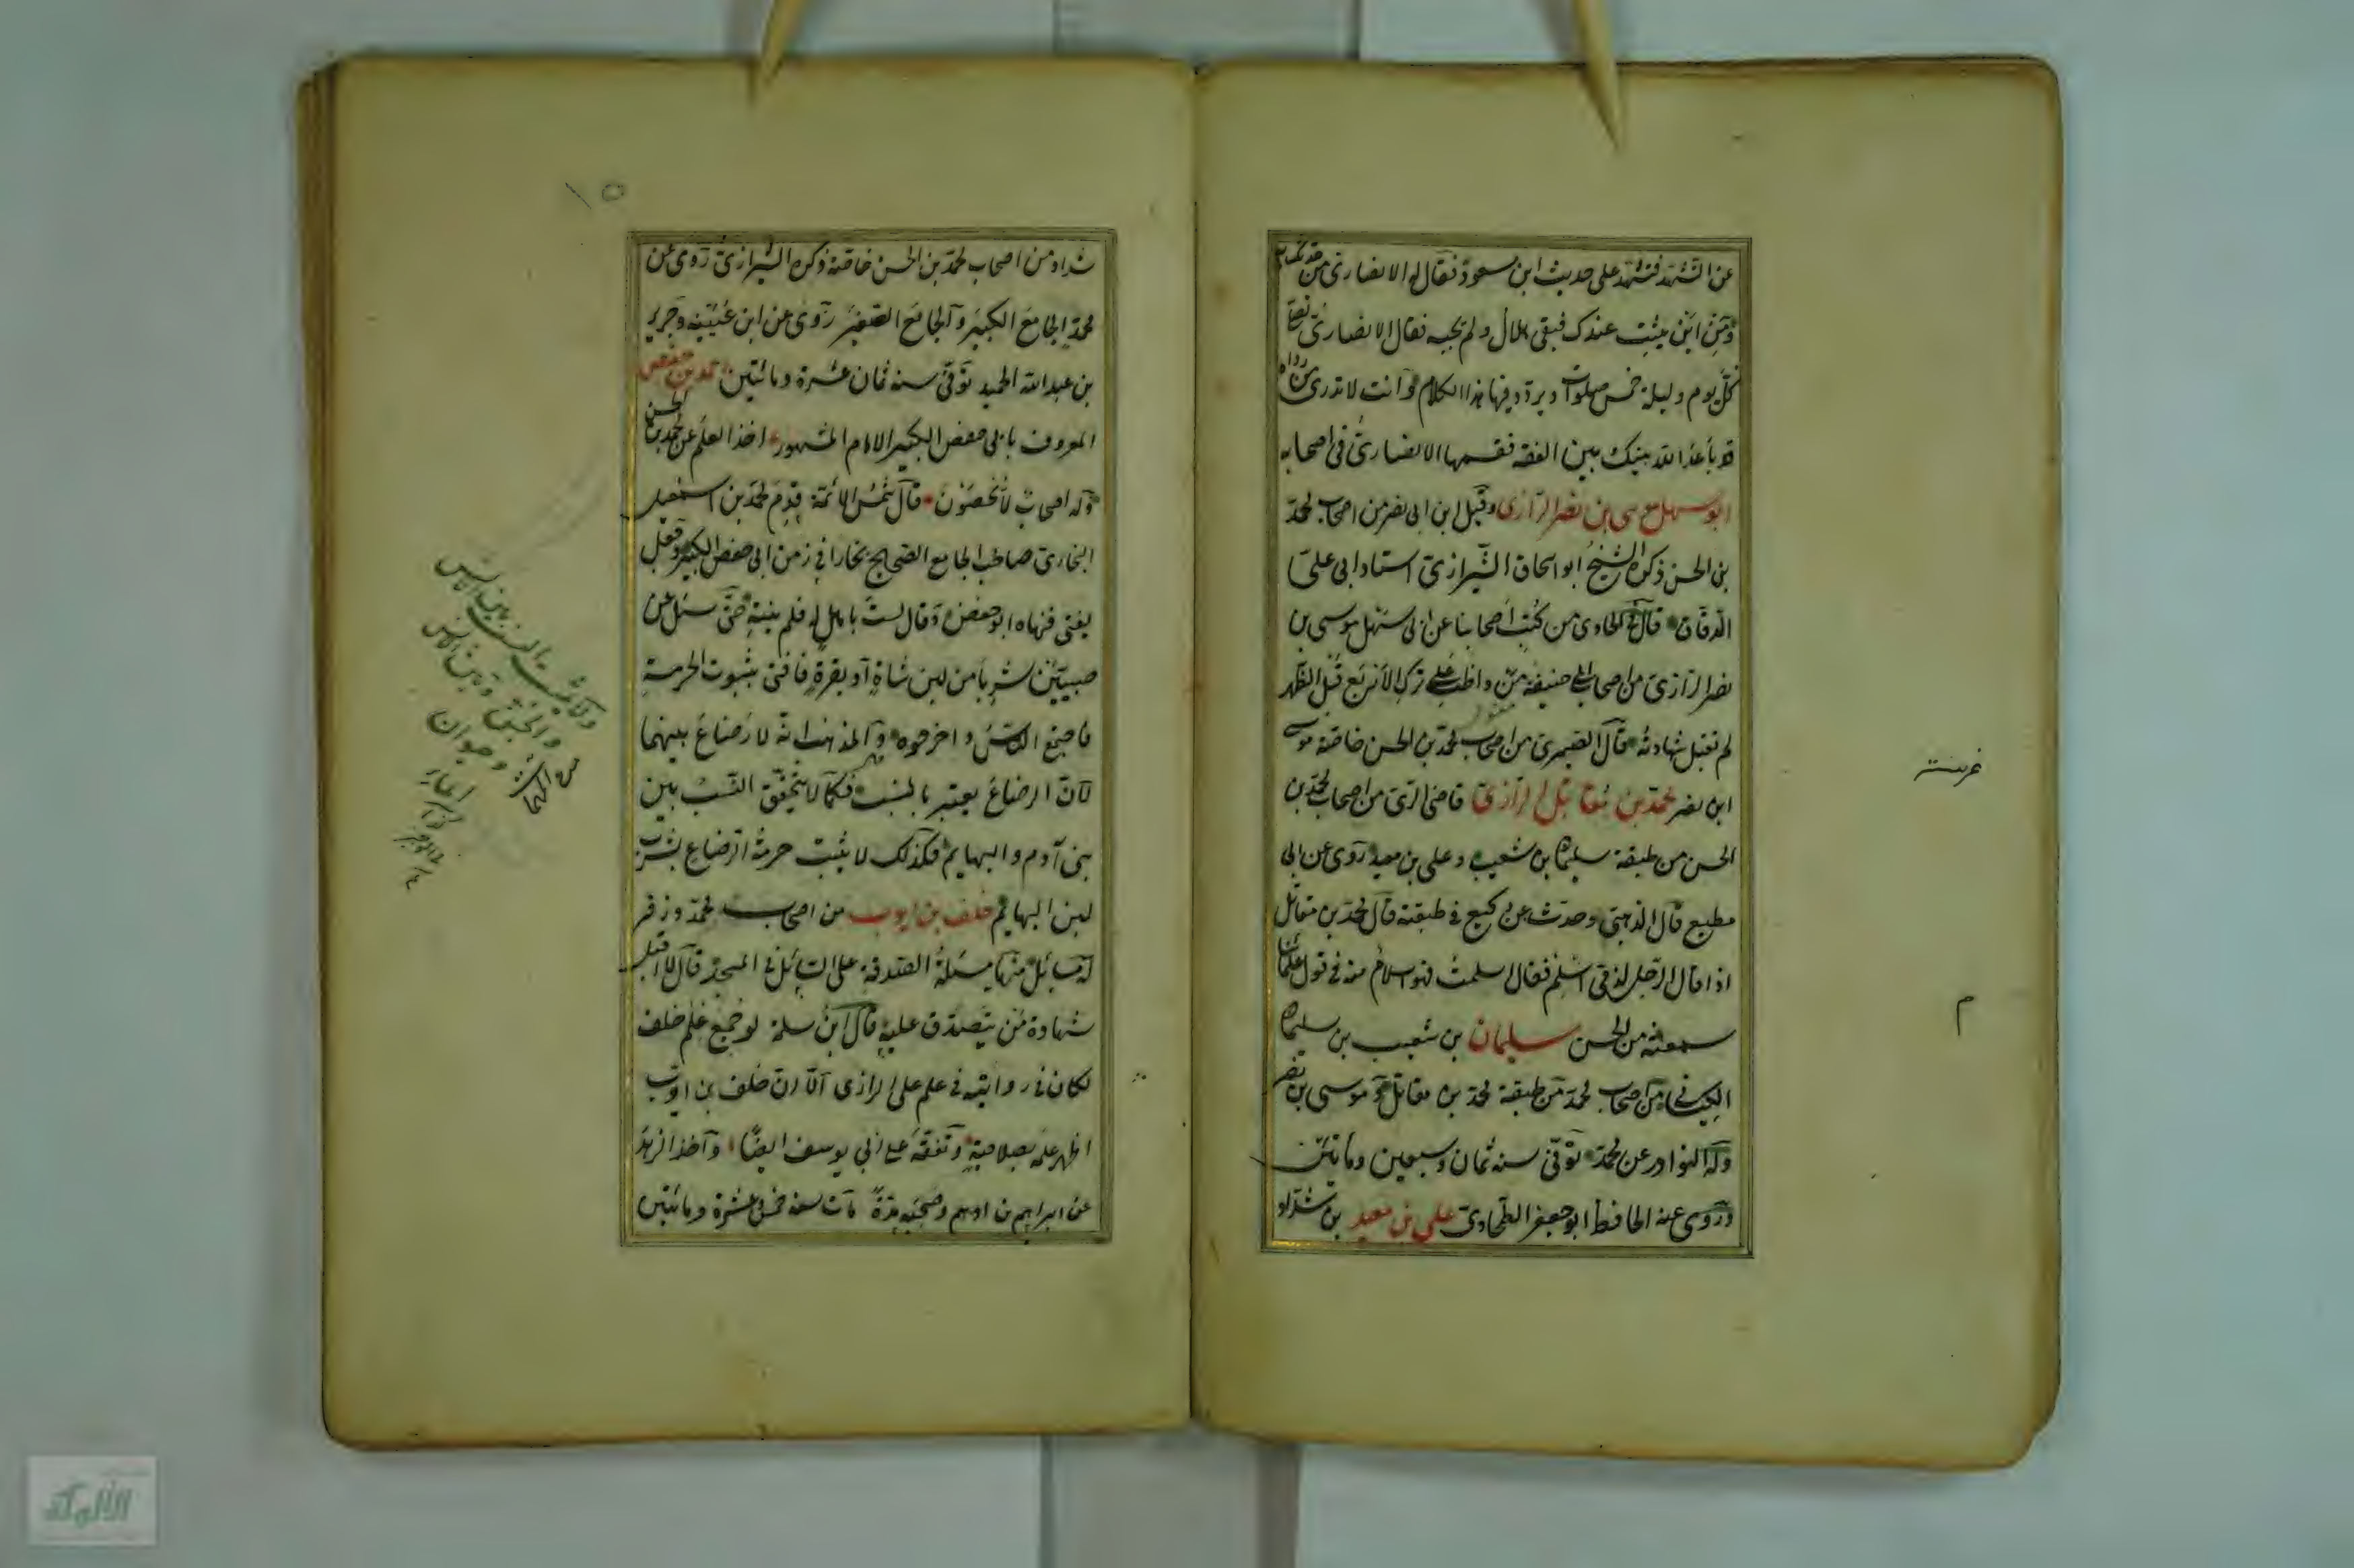 عن التشهد فتشهد على حديث ابن مسعود فقال له الانصارى من
ومن اين يثبت عندك فبقى هلال ولم يجبه فقال الانصارى
كل يوم وليلة خمس صلوات ويردد فيها هذا الكلام وانت لا تدرى من رواه
قد باعد الله بينك وبين الفقه فقسمها الانصارى فى اصحابه
ابو سهل موسى ابن نصر الرازى وقيل ابن ابى نصر من اصحاب محمد
بن الحسن ذكره الشيخ ابو اسحاق الشيرازى استاد ابى على
الدقاق قال فى الحاوى من كتب اصحابنا عن ابى سهل موسى بن
نصر الرازى من اصحاب ابى حنيفة من واظب على ترك الاربع قبل الظهر
لم تقبل شهادته قال الصيمرى من اصحاب محمد بن الحسن خاصة موسى
ابن نصر محمد بن مقاتل الرازى قاضى الرى من اصحاب محمد بن
الحسن من طبقة سليمان بن شعيب وعلى بن معبد روى عن ابى
مطيع قال الذهبى وحدث عن وكيع فى طبقته قال محمد بن مقاتل
اذا قال الرجل لذمى اسلم فقال اسلمت فهو اسلام منه فى قول علمائنا
سمعته من الحسن سليمان بن شعيب بن سليمان
الكيسانى من اصحاب محمد من طبقة محمد بن مقاتل و موسى بن نصر
وله النوادر عن محمد توفى سنه ثمان وسبعين ومائتين
وروى عنه الحافظ ابو جعفر الطحاوى على بن معبد بن شداد
غريبة
م
١٥
شداد من اصحاب محمد بن الحسن خاصة ذكره الشيرازى روى عن
محمد الجامع الكبير والجامع الصغير روى عن ابن عيينه وجرير
بن عبد الله الحميد توفى سنه ثمان عشرة ومائتين احمد بن حفص
المعروف بابى حفص الكبير الامام المشهور اخذ العلم عن محمد بن الحسن
وله اصحاب لا يحصون قال شمس الائمة قدم محمد بن اسمعيل
البخارى صاحب الجامع الصحيح بخارا فى زمن ابى حفص الكبير وجعل
يفتى فنهاه ابو حفص وقال لست باهل له فلم ينته حتى سئل عن
صبيين شربا من لبن شاة او بقرة فافتى بثبوت الحرمة
فاجتمع الناس واخرجوه والمذهب انه لا رضاع بينهما
لان الرضاع يعتبر بالنسب فكما لا يتحقق النسب بين
بنى آدم والبهايم فكذلك لا يثبت حرمة الرضاع بشرب
لبن البهايم خلف بن ايوب من اصحاب محمد وزفر
له مسائل منها مسئلة الصدقة على السائل فى المسجد قال لا اقبل
شهادة من يتصدق عليه قال ابن سلمة لو جمع علم خلف
لكان فى رواية فى علم على الرازى الا ان خلف بن ايوب
اظهر علمه بصلاحيته وتفقه على ابى يوسف ايضا واخذ الزهد
عن ابراهيم بن ادهم وصحبه مدة مات سنه خمس عشرة ومائتين
الآلوكة